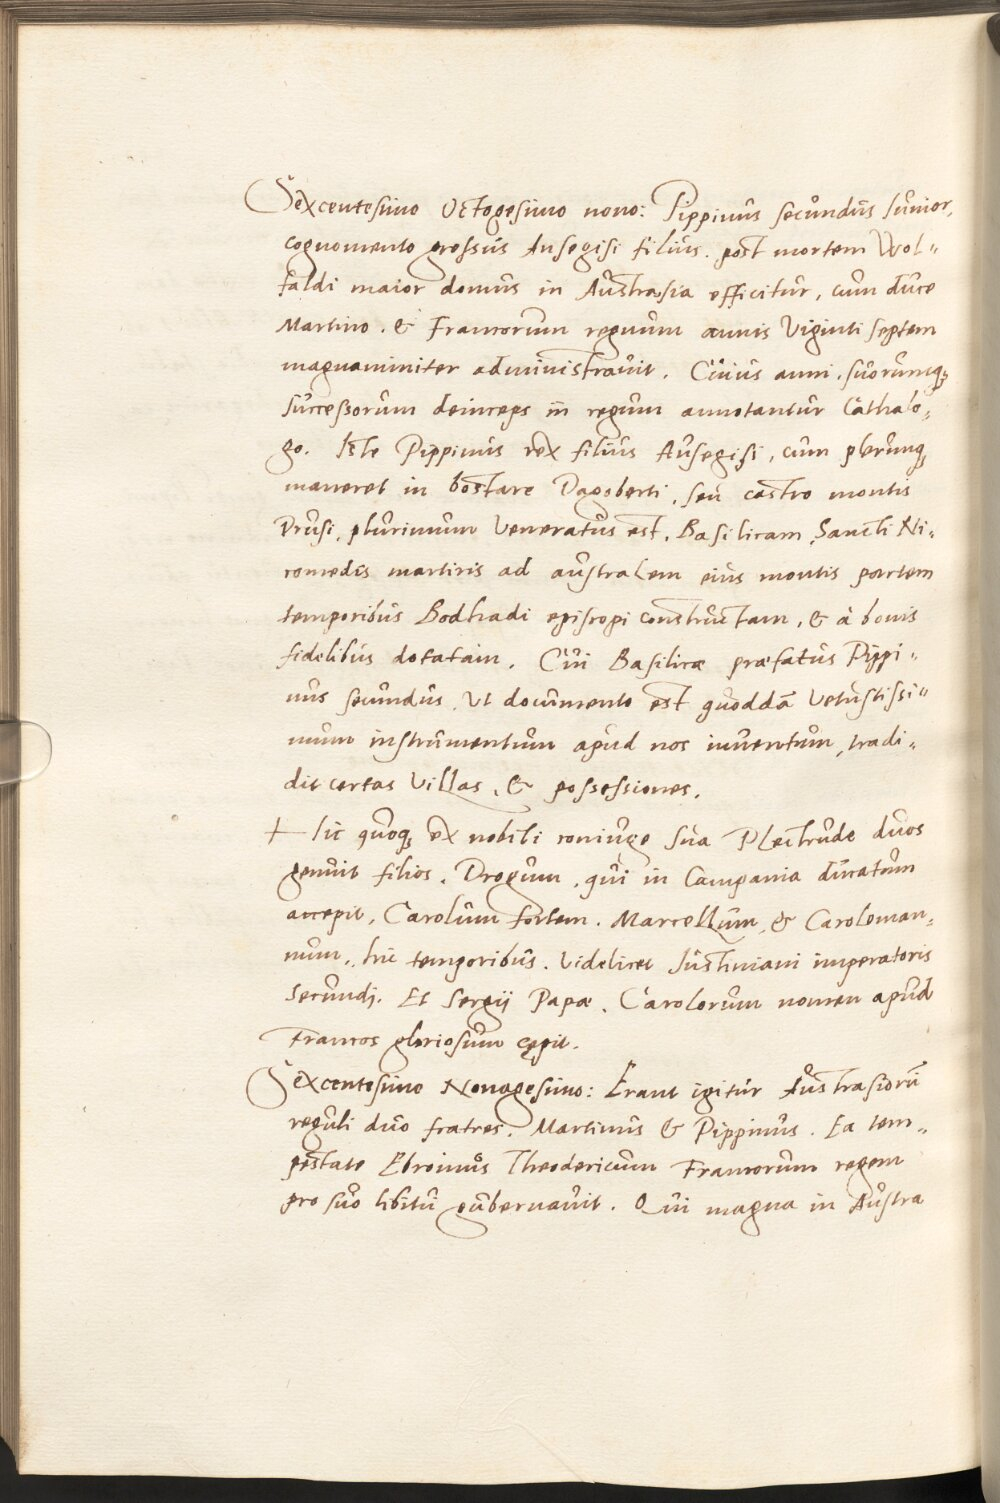 Sexcentesimo Octogesimo nono: Pippinus secundus Iunior,
cognomento grossus Ansegisi filius. post mortem Wol„
faldi maior domus in Australia efficitur, cum duce
Martino. & Francorum regnum annis Viginti septem
magnanimiter administravit. Cuius anni, suorumq;
successorum deinceps in regum annotantur Cathalo„
go. Iste Pippinus rex filius Ansegisi, cum plerunq;
maneret in bostare Dagoberti, seu castro montis
Drusi, plurimum Veneratus est, Basilicam Sancti Ni„
comedis martiris ad australem eius montis partem
temporibus Bodhadi episcopi constructam, & à bonis
fidelibus dotatam. Cui Basilicæ præfatus Pippi„
nus secundus, Ut documento est quoddã Vetustissi„
mum instrumentum apud nos inventum, tradi„
dit certas Villas, & possessiones.
Hic quoq; ex nobili coniuge sua Plectrude duos
genuit filios. Drogum, qui in Campania ducatum
accepit, Carolum fortem. Marcellum, & Caroloman„
num, hic temporibus. Videlicet Iustiniani imperatoris
Secundi. Et Sergij Papæ. Carolorum nomen apud
Francos gloriosum cępit.
Sexcentesimo Nonagesimo: Erant igitur Austrasiorũ
reguli duo fratres. Martinus & Pippinus. Ea tem„
pestate Ebroinus Theodericum Francorum regem
pro suo libitu gubernavit. Qui magna in Austra